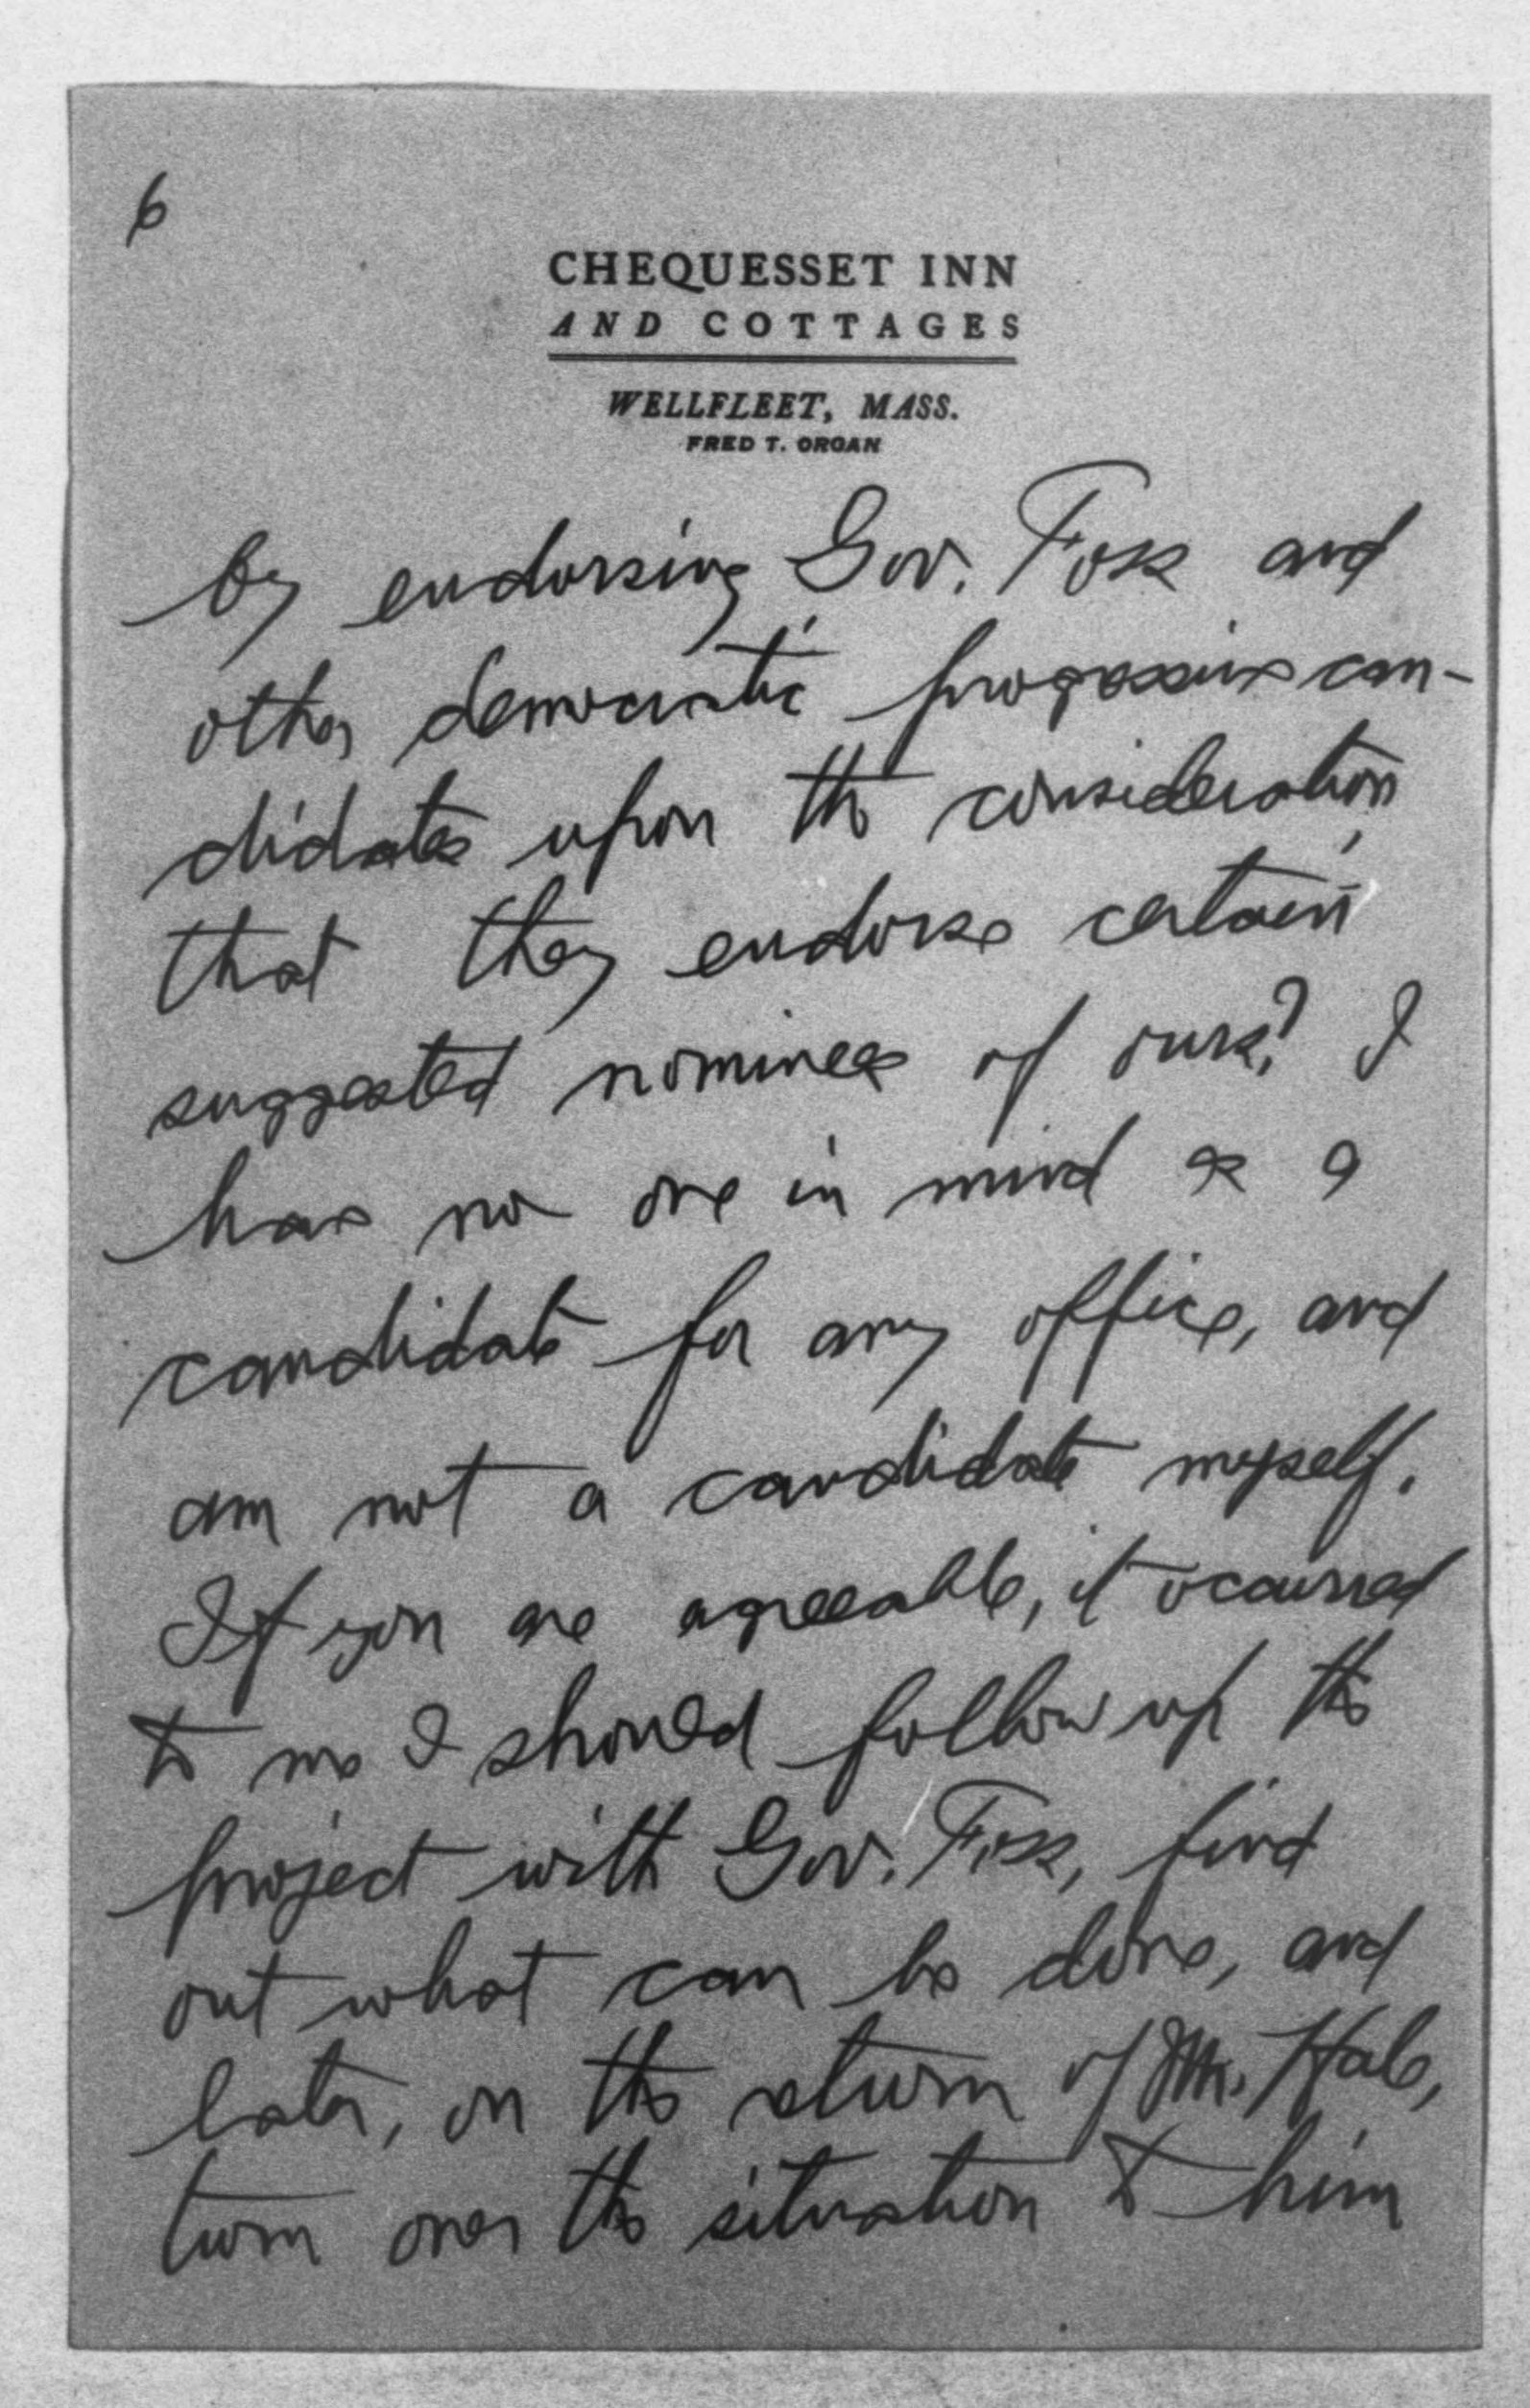 6
CHEQUESSET INN
AND COTTAGES
WELLFLEET, MASS.
FRED T. ORGAN
by endorsing Gov. Foss and
other democratic progessive can-
didates upon the consideration,
that they endorse certain
suggested nominees of ours? I
have no one in mind as a
candidate for any office, and
am not a candidate myself.
If you are agreeable, it ocurred
to me I should follow up the
project with Gov. Foss, find
out what can be done, and
later, on the return of Mr. Hale,
turn over the situation to him